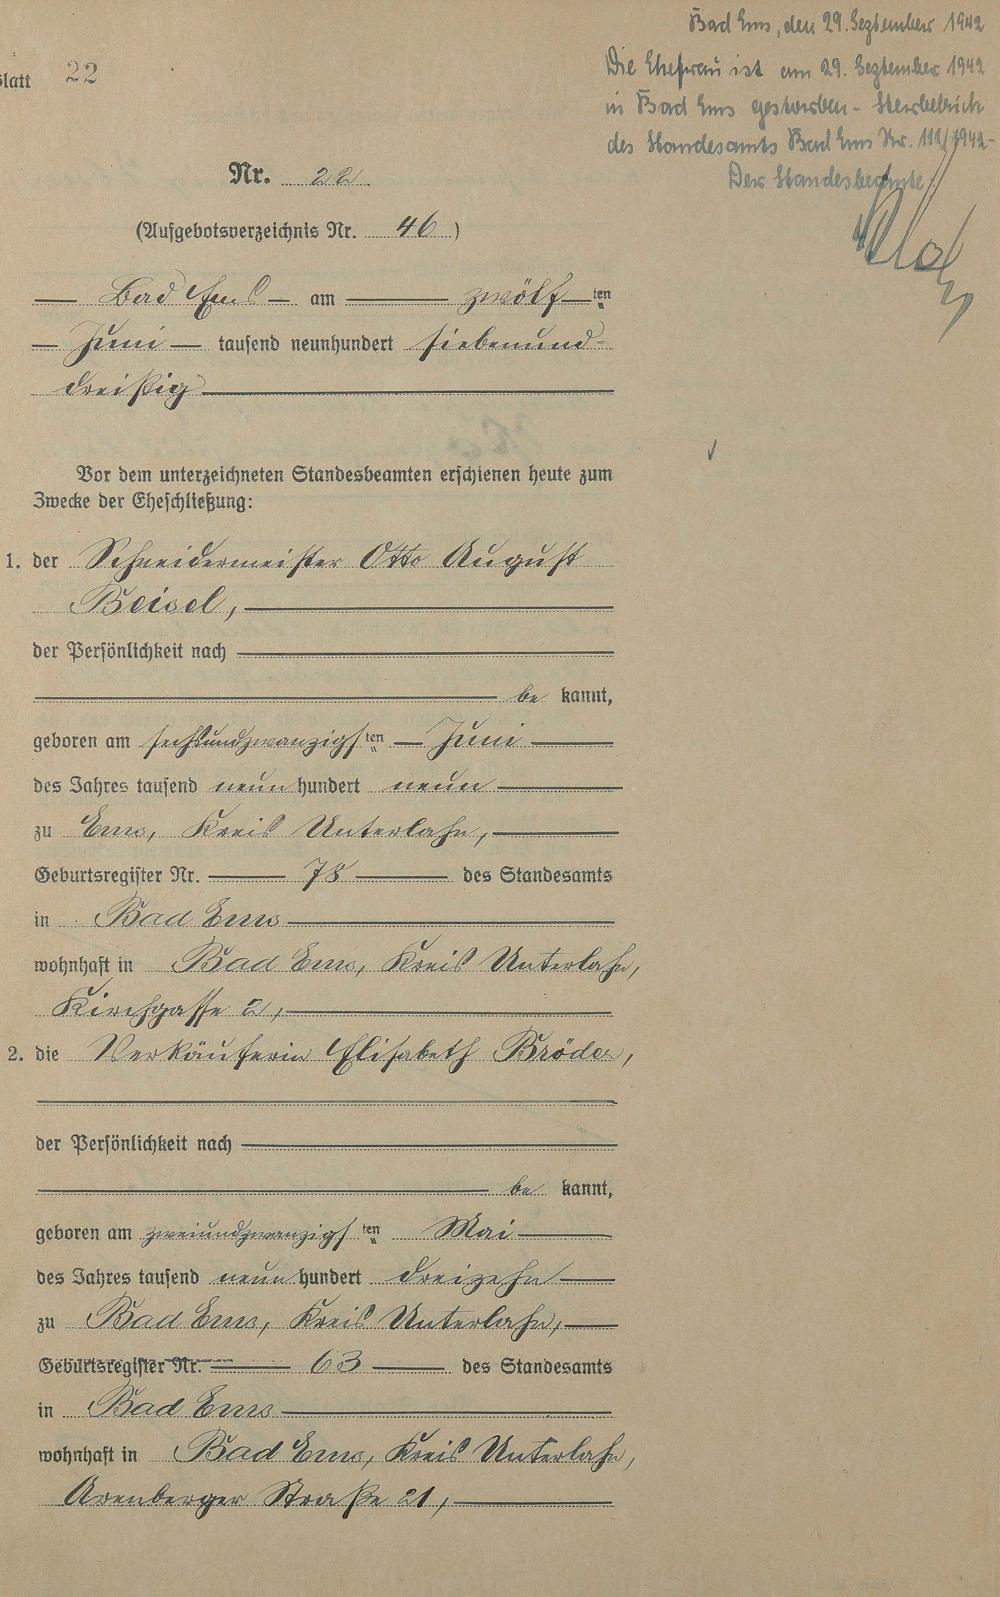 Bad Ems, den 29. September 1942
Die Ehefrau ist am 29. September 1942
in Bad Ems gestorben - Sterbebuch
des Standesamts Bad Ems Nr. 111/1942-
Der Standesbeamte:
Blatt 22
Nr. 22
(Aufgebotsverzeichnis Nr. 46)
Bad Ems am zwölf ten
Juni tausend neunhundert siebenund-
dreißig
Vor dem unterzeichneten Standesbeamten erschienen heute zum
Zwecke der Eheschließung:
1. der Schneidermeister Otto August
Beisel,
der Persönlichkeit nach
be kannt,
geboren am sechsundzwanzigs ten Juni
des Jahres tausend neun hundert neun
zu Ems, Kreis Unterlahn,
Geburtsregister Nr. 78 des Standesamts
in Bad Ems
wohnhaft in Bad Ems, Kreis Unterlahn,
Kirchgasse 2,
2. die Verkäuferin Elisabeth Bröder,
der Persönlichkeit nach
be kannt,
geboren am zweiundzwanzigs ten Mai
des Jahres tausend neun hundert dreizehn
zu Bad Ems, Kreis Unterlahn,
Geburtsregister Nr. 63 des Standesamts
in Bad Ems
wohnhaft in Bad Ems, Kreis Unterlahn,
Arenberger Straße 21,